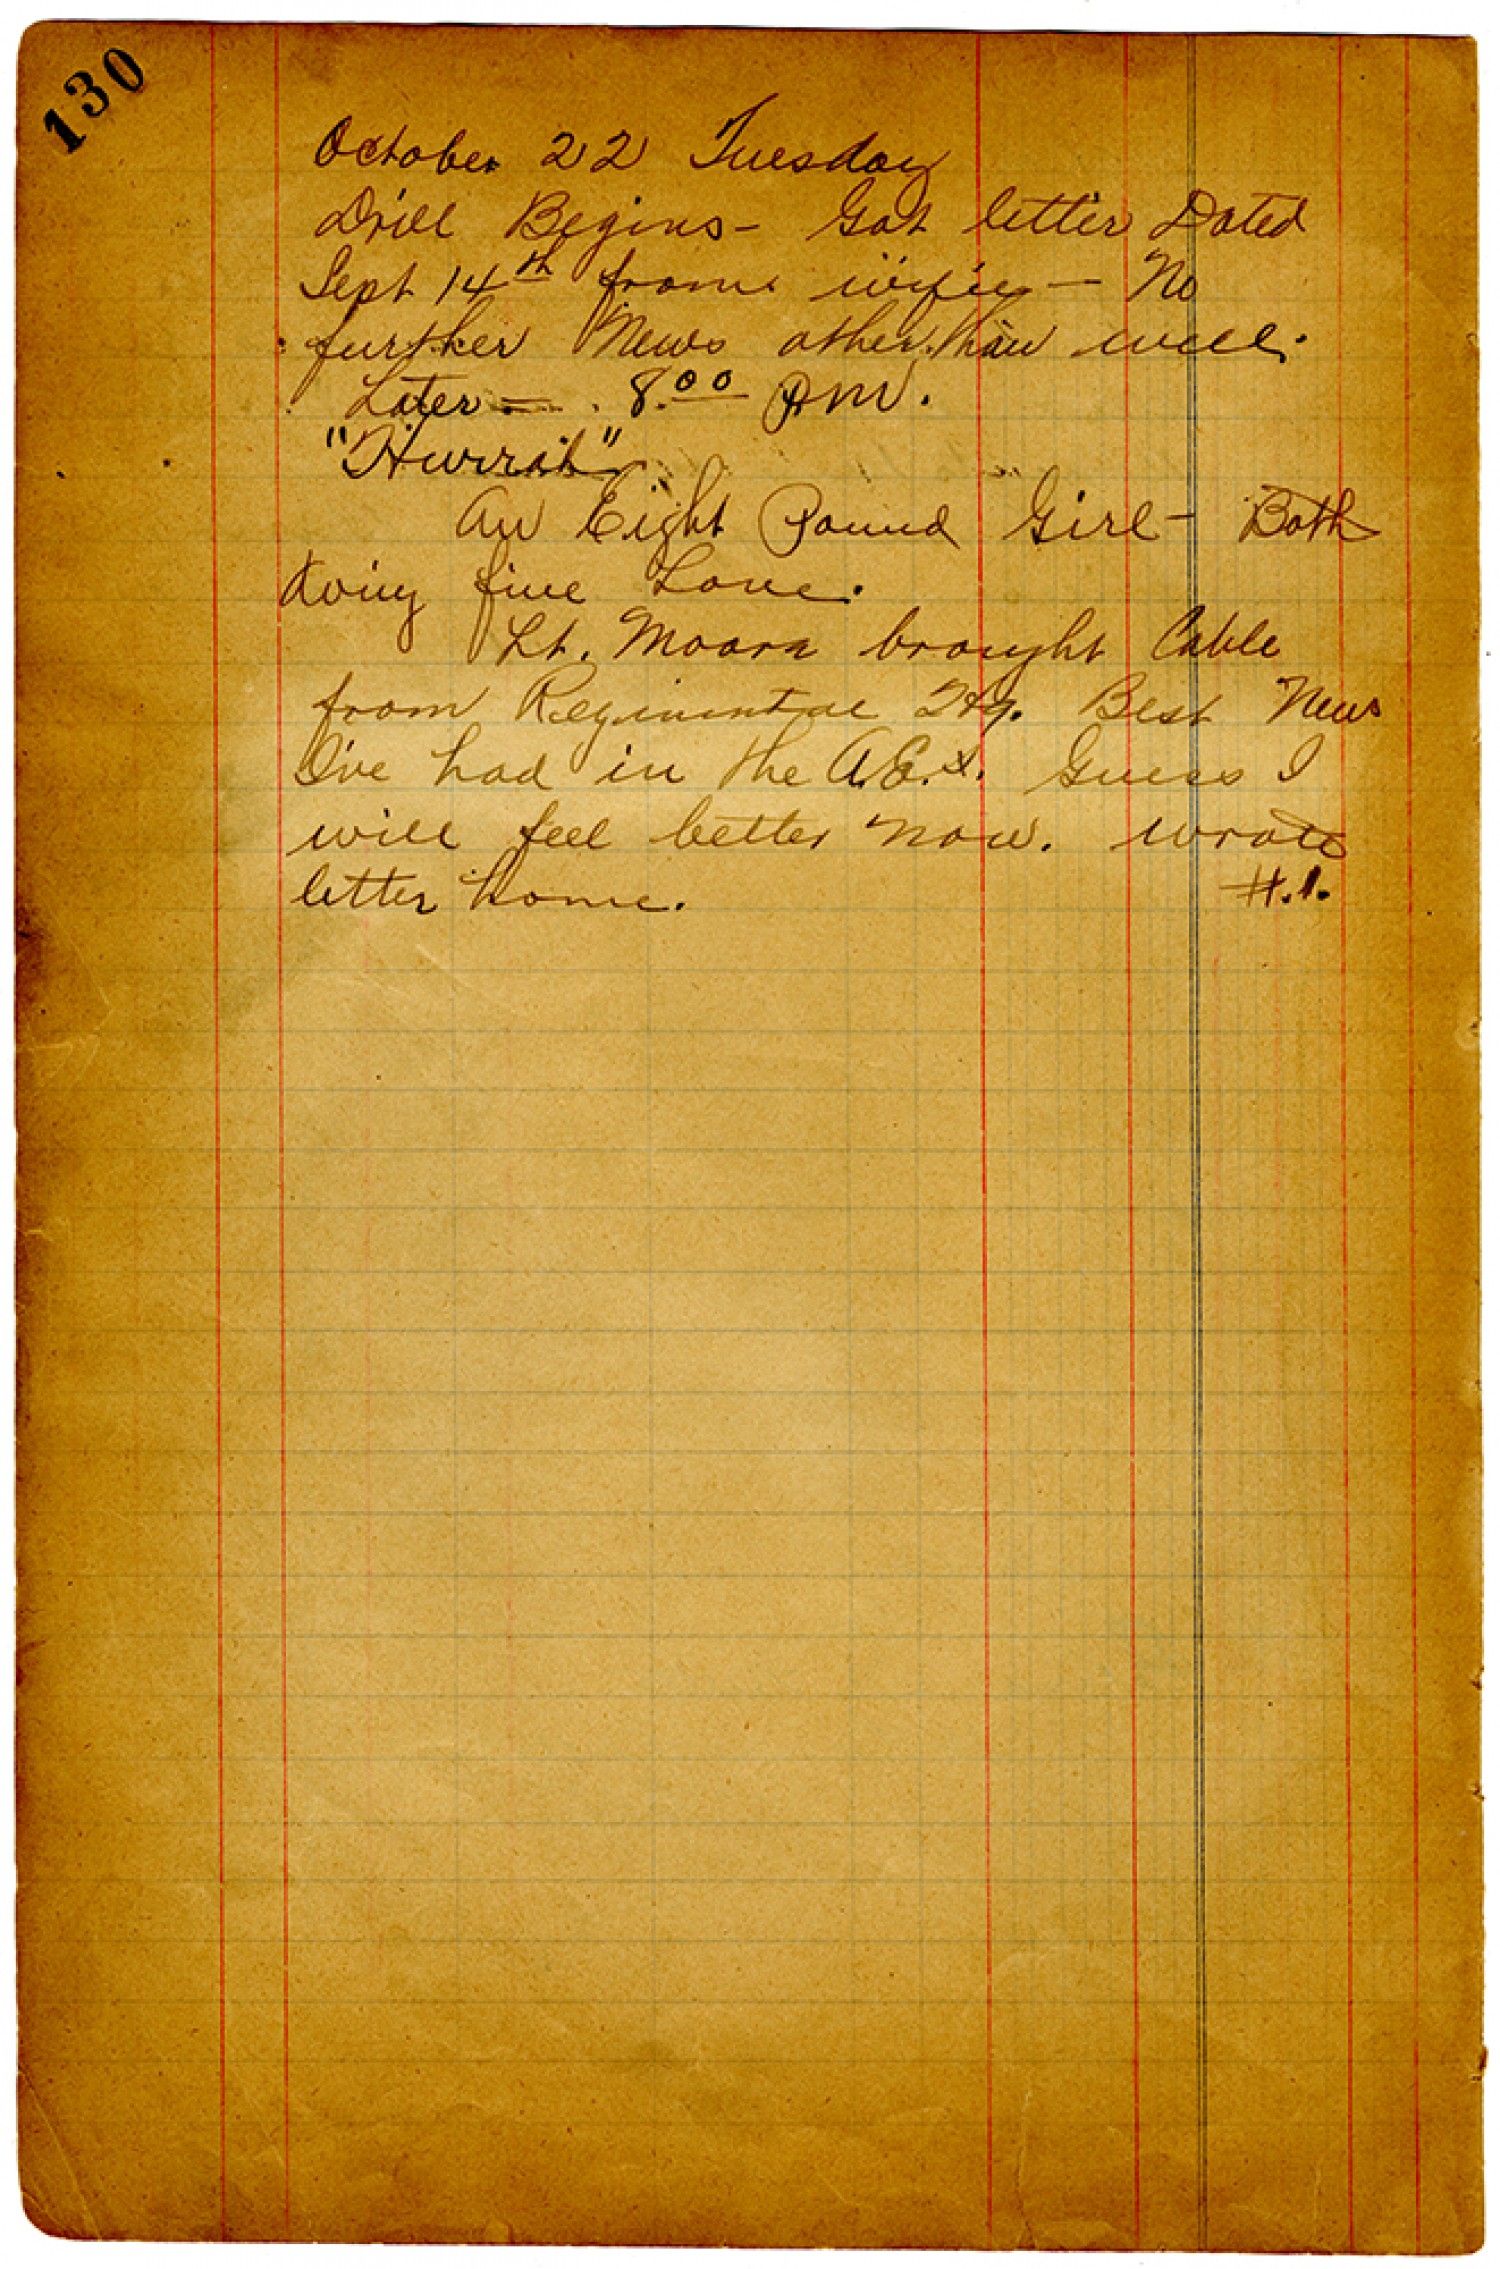 130
October 22 Tuesday
Drill Begins - Got letter Dated
Sept 14th from wifie - No
further News other than well.
Later = 8.00 P.M.
"Hurrah"
An Eight Pound Girl - Both
doing fine Love.
Lt. Moora brought Cable
from Regimental Hq. Best News
I've had in the A.E.F. Guess I
will feel better now. Wrote
letter home. #.1.